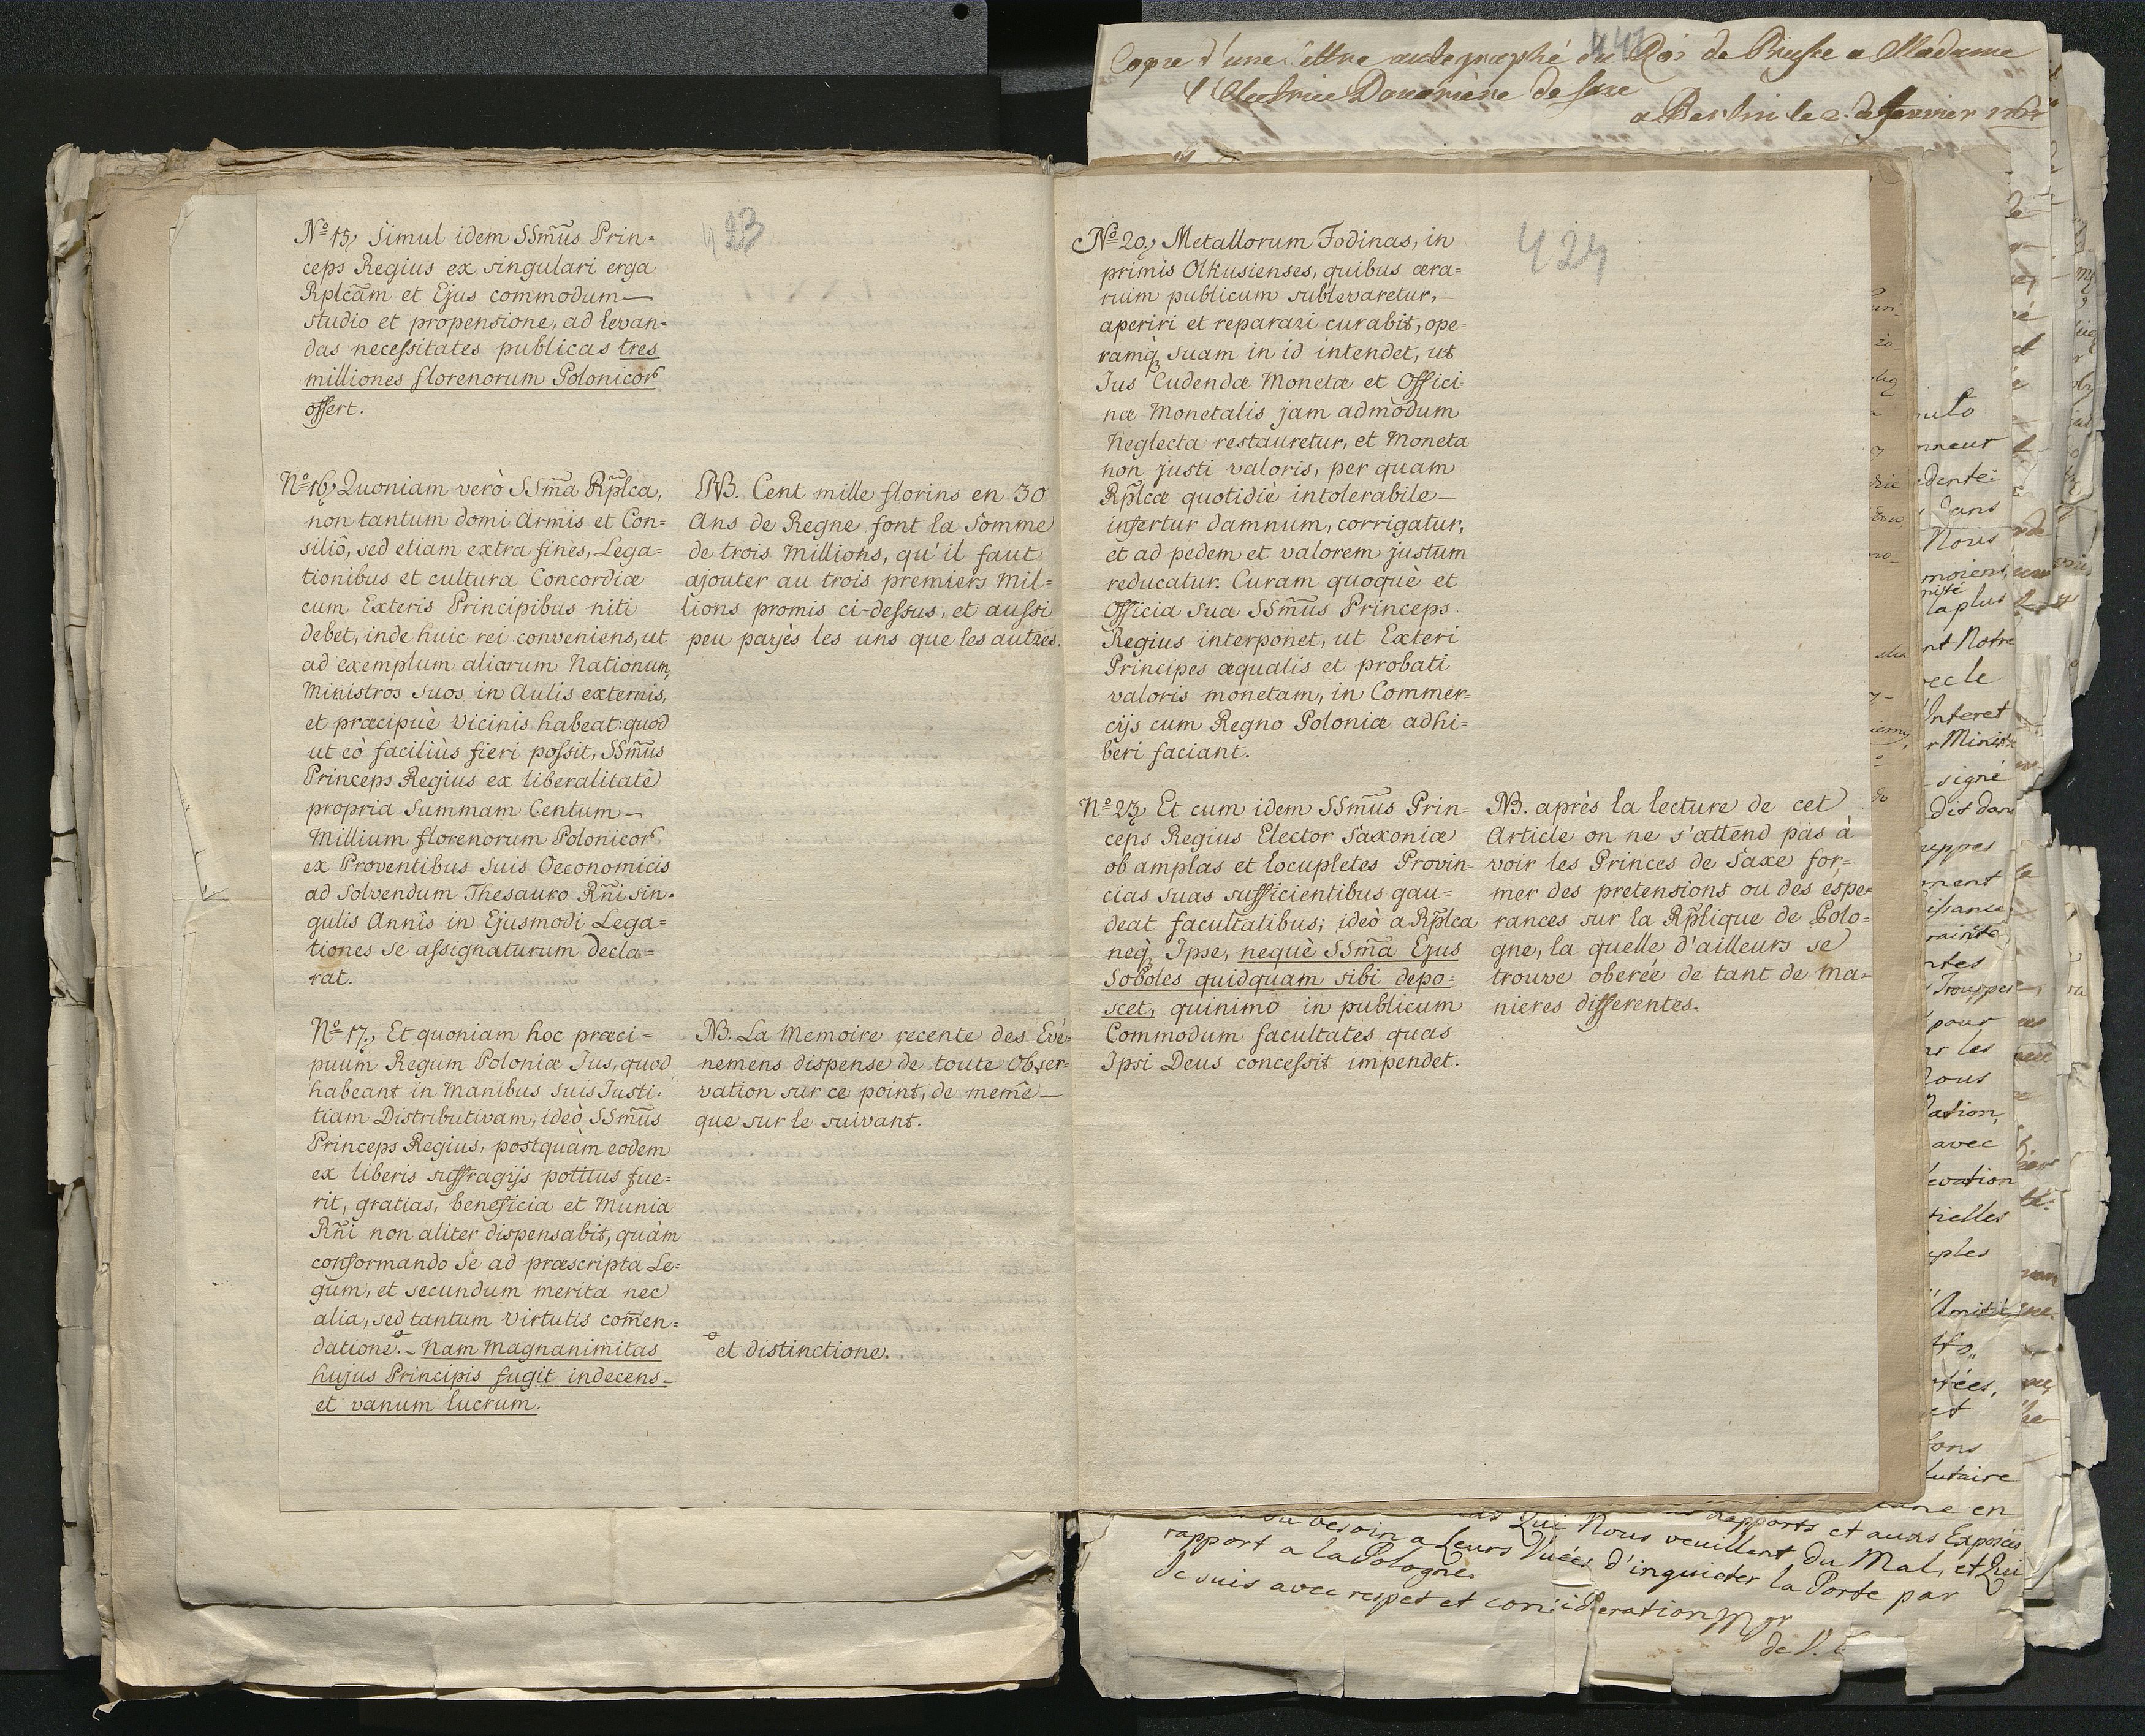 Copie d'une lettre autographé du Roi de Prusse a Madame
l'Electrice Douariere de Saxe
a Berlin le 2. de
423
Nº 15, Simul idem SSm̃us Prin=
ceps Regius ex singulari erga
Rplcam̃ et Ejus commodum—
studio et propensione, ad levan-
das necessitates publicas tres
milliones florenorum Polonicor̃
offert.
Nº 16, Quoniam verò SSm̃a Rp̃lca,
non tantum domi Armis et Con=
siliô, sed etiam extra fines, Lega=
tionibus et cultura Concordiæ
cum Exteris Principibus niti
debet, inde huic rei conveniens, ut
ad exemplum aliarum Nationum,
Ministros suos in Aulis externis,
et præcipuè Vicinis habeat: quod
ut eò faciliùs fieri possit, SSm̃us
Princeps Regius ex liberalitatê
propria Summam Centum—
Millium florenorum Polonicor̃
ex Proventibus suis Oeconomicis
ad Solvendum Thesauro Rñi sin-
gulis Annîs in Ejusmodi Lega=
tiones se assignaturum decla=
rat.
NB. Cent mille florins en 30
Ans de Regne font la Somme
de trois Millions, qu'il faut
ajouter au trois premiers Mil=
lions promis ci-dessus, et aussi
peu payés les uns que les autres.
Nº 17, Et quoniam hoc præci=
puum Regum Poloniæ Jus, quod
habeant in Manibus suis Justi=
tiam Distributivam, ideò SSm̃us
Princeps Regius, postquàm eodem
ex liberis suffragijs potitus fue=
rit, gratias, beneficia et Munia
Rñi non aliter dispensabit, quàm
conformando Se ad præscripta Le=
gum, et secundum merita nec
alia, sed tantum Virtutis com̃en=
datione.- Nam Magnanimitas
hujus Principis fugit indecens—
et vanum lucrum.
NB. La Memoire recente des Evé=
nemens dispense de toute Obser=
vation sur ce point, de meme—
que sur le suivant.
et distinctione.
424
Nº 20, Metallorum Fodinas, in
primis Olkusienses, quibus æra=
rium publicum sublevaretur,—
aperiri et reparari curabit, ope=
ramq̃ suam in id intendet, ut
Jus Cudendæ Monetæ et Offici
næ Monetalis jam admodum
Neglecta restauretur, et Moneta
non justi valoris, per quam
Rp̃lcæ quotidiè intolerabile—
infertur damnum, corrigatur,
et ad pedem et valorem justum
reducatur. Curam quoquè et
Officia sua SSm̃us Princeps.
Regius interponet, ut Exteri
Principes æqualis et probati
valoris monetam, in Commer=
cijs cum Regno Poloniæ adhi=
beri faciant.
Nº 23, Et cum idem SSm̃us Prin=
ceps Regius Elector Saxoniæ
ob amplas et locupletes Provin=
cias suas sufficientibus gau=
deat facultatibus; ideò a Rp̃lca
neq̃ Ipse, nequè SSm̃a Ejus
Soboles quidquam sibi depo=
scet, quinimo in publicum
Commodum facultates quas
Ipsi Deus concessit impendet.
NB. après la lecture de cet
Article on ne s'attend pas à
voir les Princes de Saxe for=
mer des pretensions ou des espe=
rances sur la Rp̃lique de Polo=
gne, la quelle d'ailleurs se
trouve oberée de tant de ma-
nieres differentes.
nneur
dans
Nous
moiens,
la plus
nt Notre
Interet
signé
dit dan
pour
Nous
avec
rapports et aux Exposés
au besoin a Leurs Vuées Qui Nous veuillent du Mal, et Qui
d'inquieter la Porte par
rapport a la Pologne.
Je suis avec respet et consideration Mgr